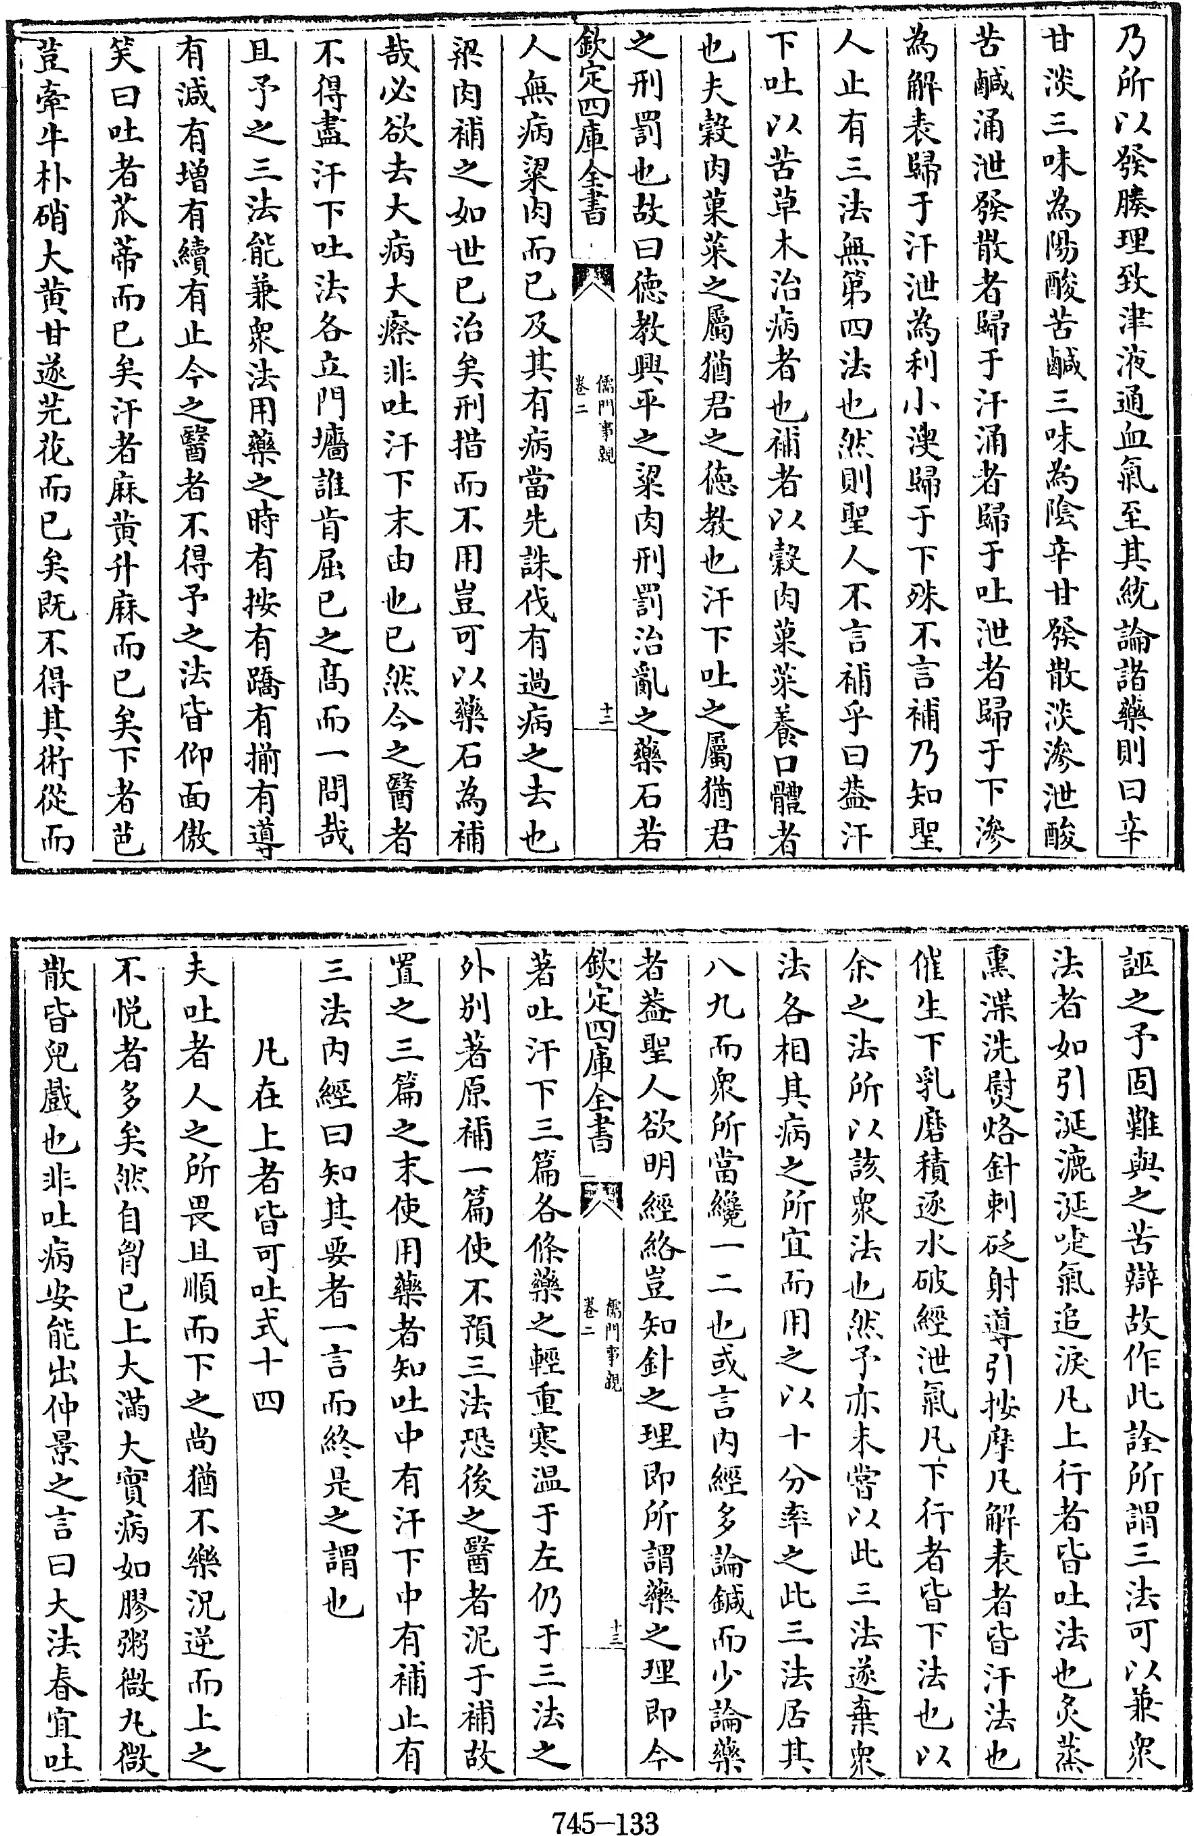 乃所以發腠理致津液通血氣至其統論諸藥則曰辛
甘淡三味為陽酸苦鹹三味為陰辛甘發散淡滲泄酸
苦鹹涌泄發散者歸于汗涌者歸于吐泄者歸于下滲
為解表歸于汗泄為利小溲歸于下殊不言補乃知聖
人止有三法無第四法也然則聖人不言補乎曰葢汗
下吐以苦草木治病者也補者以穀肉菓菜養口體者
也夫穀肉菓菜之屬猶君之德教也汗下吐之屬猶君
之刑罰也故曰德教興平之粱肉刑罰治亂之藥石若
欽定四庫全書
儒門事親
卷二
十三
人無病粱肉而已及其有病當先誅伐有過病之去也
粱肉補之如世已治矣刑措而不用豈可以藥石為補
哉必欲去大病大瘵非吐汗下末由也已然今之醫者
不得盡汗下吐法各立門墻誰肯屈已之高而一問哉
且予之三法能兼衆法用藥之時有按有蹻有揃有導
有減有增有續有止今之醫者不得予之法皆仰面傲
笑曰吐者瓜蔕而已矣汗者麻黄升麻而已矣下者芭
豆牽牛朴硝大黄甘遂芫花而已矣既不得其術從而
誣之予固難與之苦辯故作此詮所謂三法可以兼衆
法者如引涎漉涎嚏氣追淚凡上行者皆吐法也灸蒸
熏渫洗熨烙針刺砭射導引按摩凡解表者皆汗法也
催生下乳磨積逐水破經泄氣凡下行者皆下法也以
余之法所以該衆法也然予亦未嘗以此三法遂棄衆
法各相其病之所宜而用之以十分率之此三法居其
八九而衆所當纔一二也或言内經多論鍼而少論藥
者葢聖人欲明經絡豈知針之理即所謂藥之理即今
欽定四庫全書
儒門事親
卷二
十三
著吐汗下三篇各條藥之輕重寒温于左仍于三法之
外别著原補一篇使不預三法恐後之醫者泥于補故
置之三篇之末使用藥者知吐中有汗下中有補止有
三法内經曰知其要者一言而終是之謂也
凡在上者皆可吐式十四
夫吐者人之所畏且順而下之尚猶不樂況逆而上之
不悦者多矣然自胷已上大滿大實病如膠粥微丸微
散皆兒戲也非吐病安能出仲景之言曰大法春宜吐
745-133